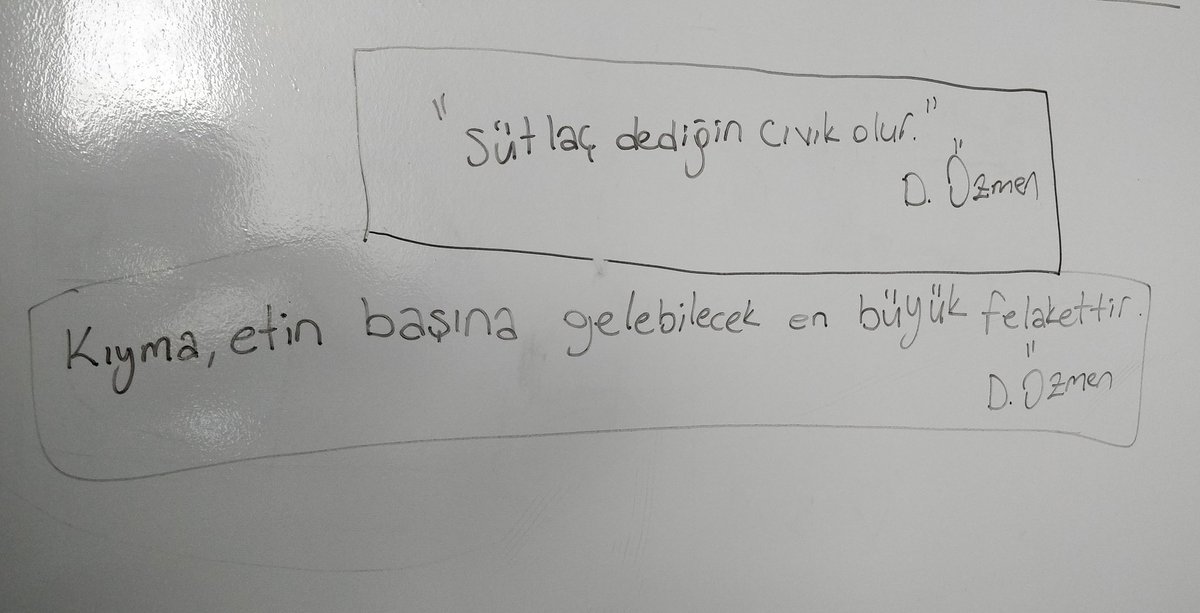 "Sütlaç dediğin cıvık olur."
D. Özmen
Kıyma, etin başına gelebilecek en büyük felakettir.
D. Özmen